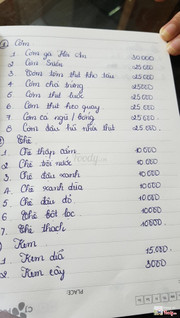 Cơm
1 Cơm gà Hải Nam 30.000
2 Cơm Sườn 25.000
3 Cơm tôm thịt kho tàu 25.000
4 Cơm chả trứng 25.000
5 Cơm thịt luộc 25.000
6 Cơm thịt heo quay 25.000
7 Cơm cá ngừ / bóng 25.000
8 Cơm đậu hũ nhồi thịt 25.000
Chè
1. Chè thập cẩm 10.000
2. Chè trôi nước 10.000
3. Chè đậu xanh 10.000
4. Chè xanh dừa 10.000
5. Chè đậu đỏ 10.000
6. Chè bột lọc 10.000
7. Chè thạch 10.000
Kem
1. Kem dừa 15.000
2. Kem cây 3000
PLACE: